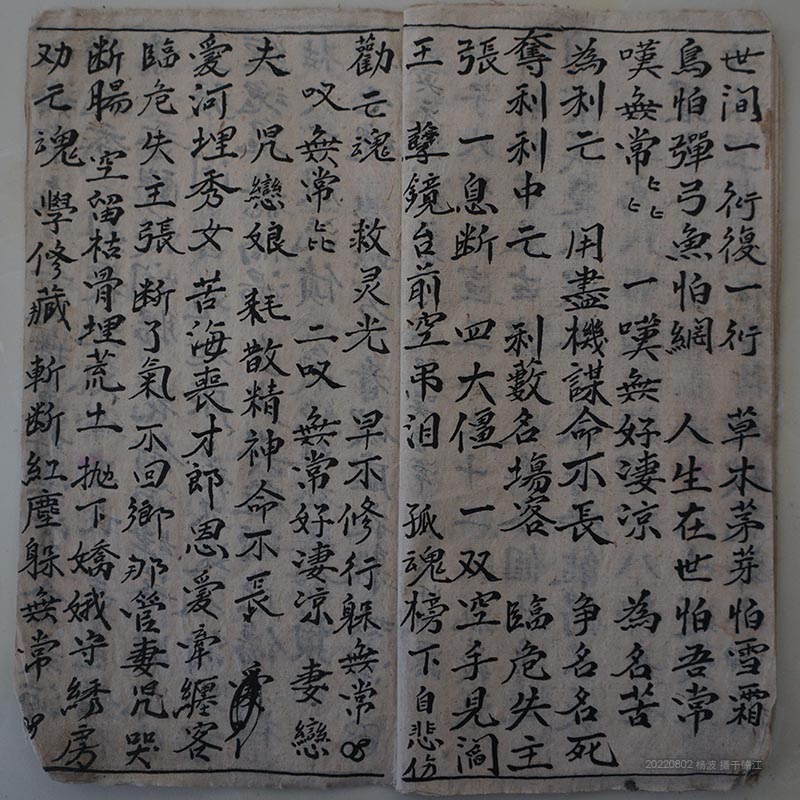 世间一行復一行 草木茅芽怕雪霜
鳥怕彈弓魚怕網 人生在世怕吾常
嘆無常匕匕匕 一嘆無好凄凉 為名苦
為利亡 用盡機謀命不長 争名名死
奪利利中亡 利藪名塲客 臨危失主
張 一息断 四大僵 一双空手見閻
王 孽鏡台前空吊泪 孤魂榜下自悲伤
勸亡魂 救灵光 早不修行躲無常
叹無常匕 二叹無常好凄凉 妻戀
夫 児戀娘 耗散精神命不長
愛河埋秀女 苦海喪才郎 恩愛牽纏客
臨危失主張 断了氣不回鄉 那管妻児哭
断腸 空留枯骨埋荒土 抛下嬌娥守綉房
劝亡魂 學修藏 斬断紅塵躲無常
20220802 杨波 摄于镇江